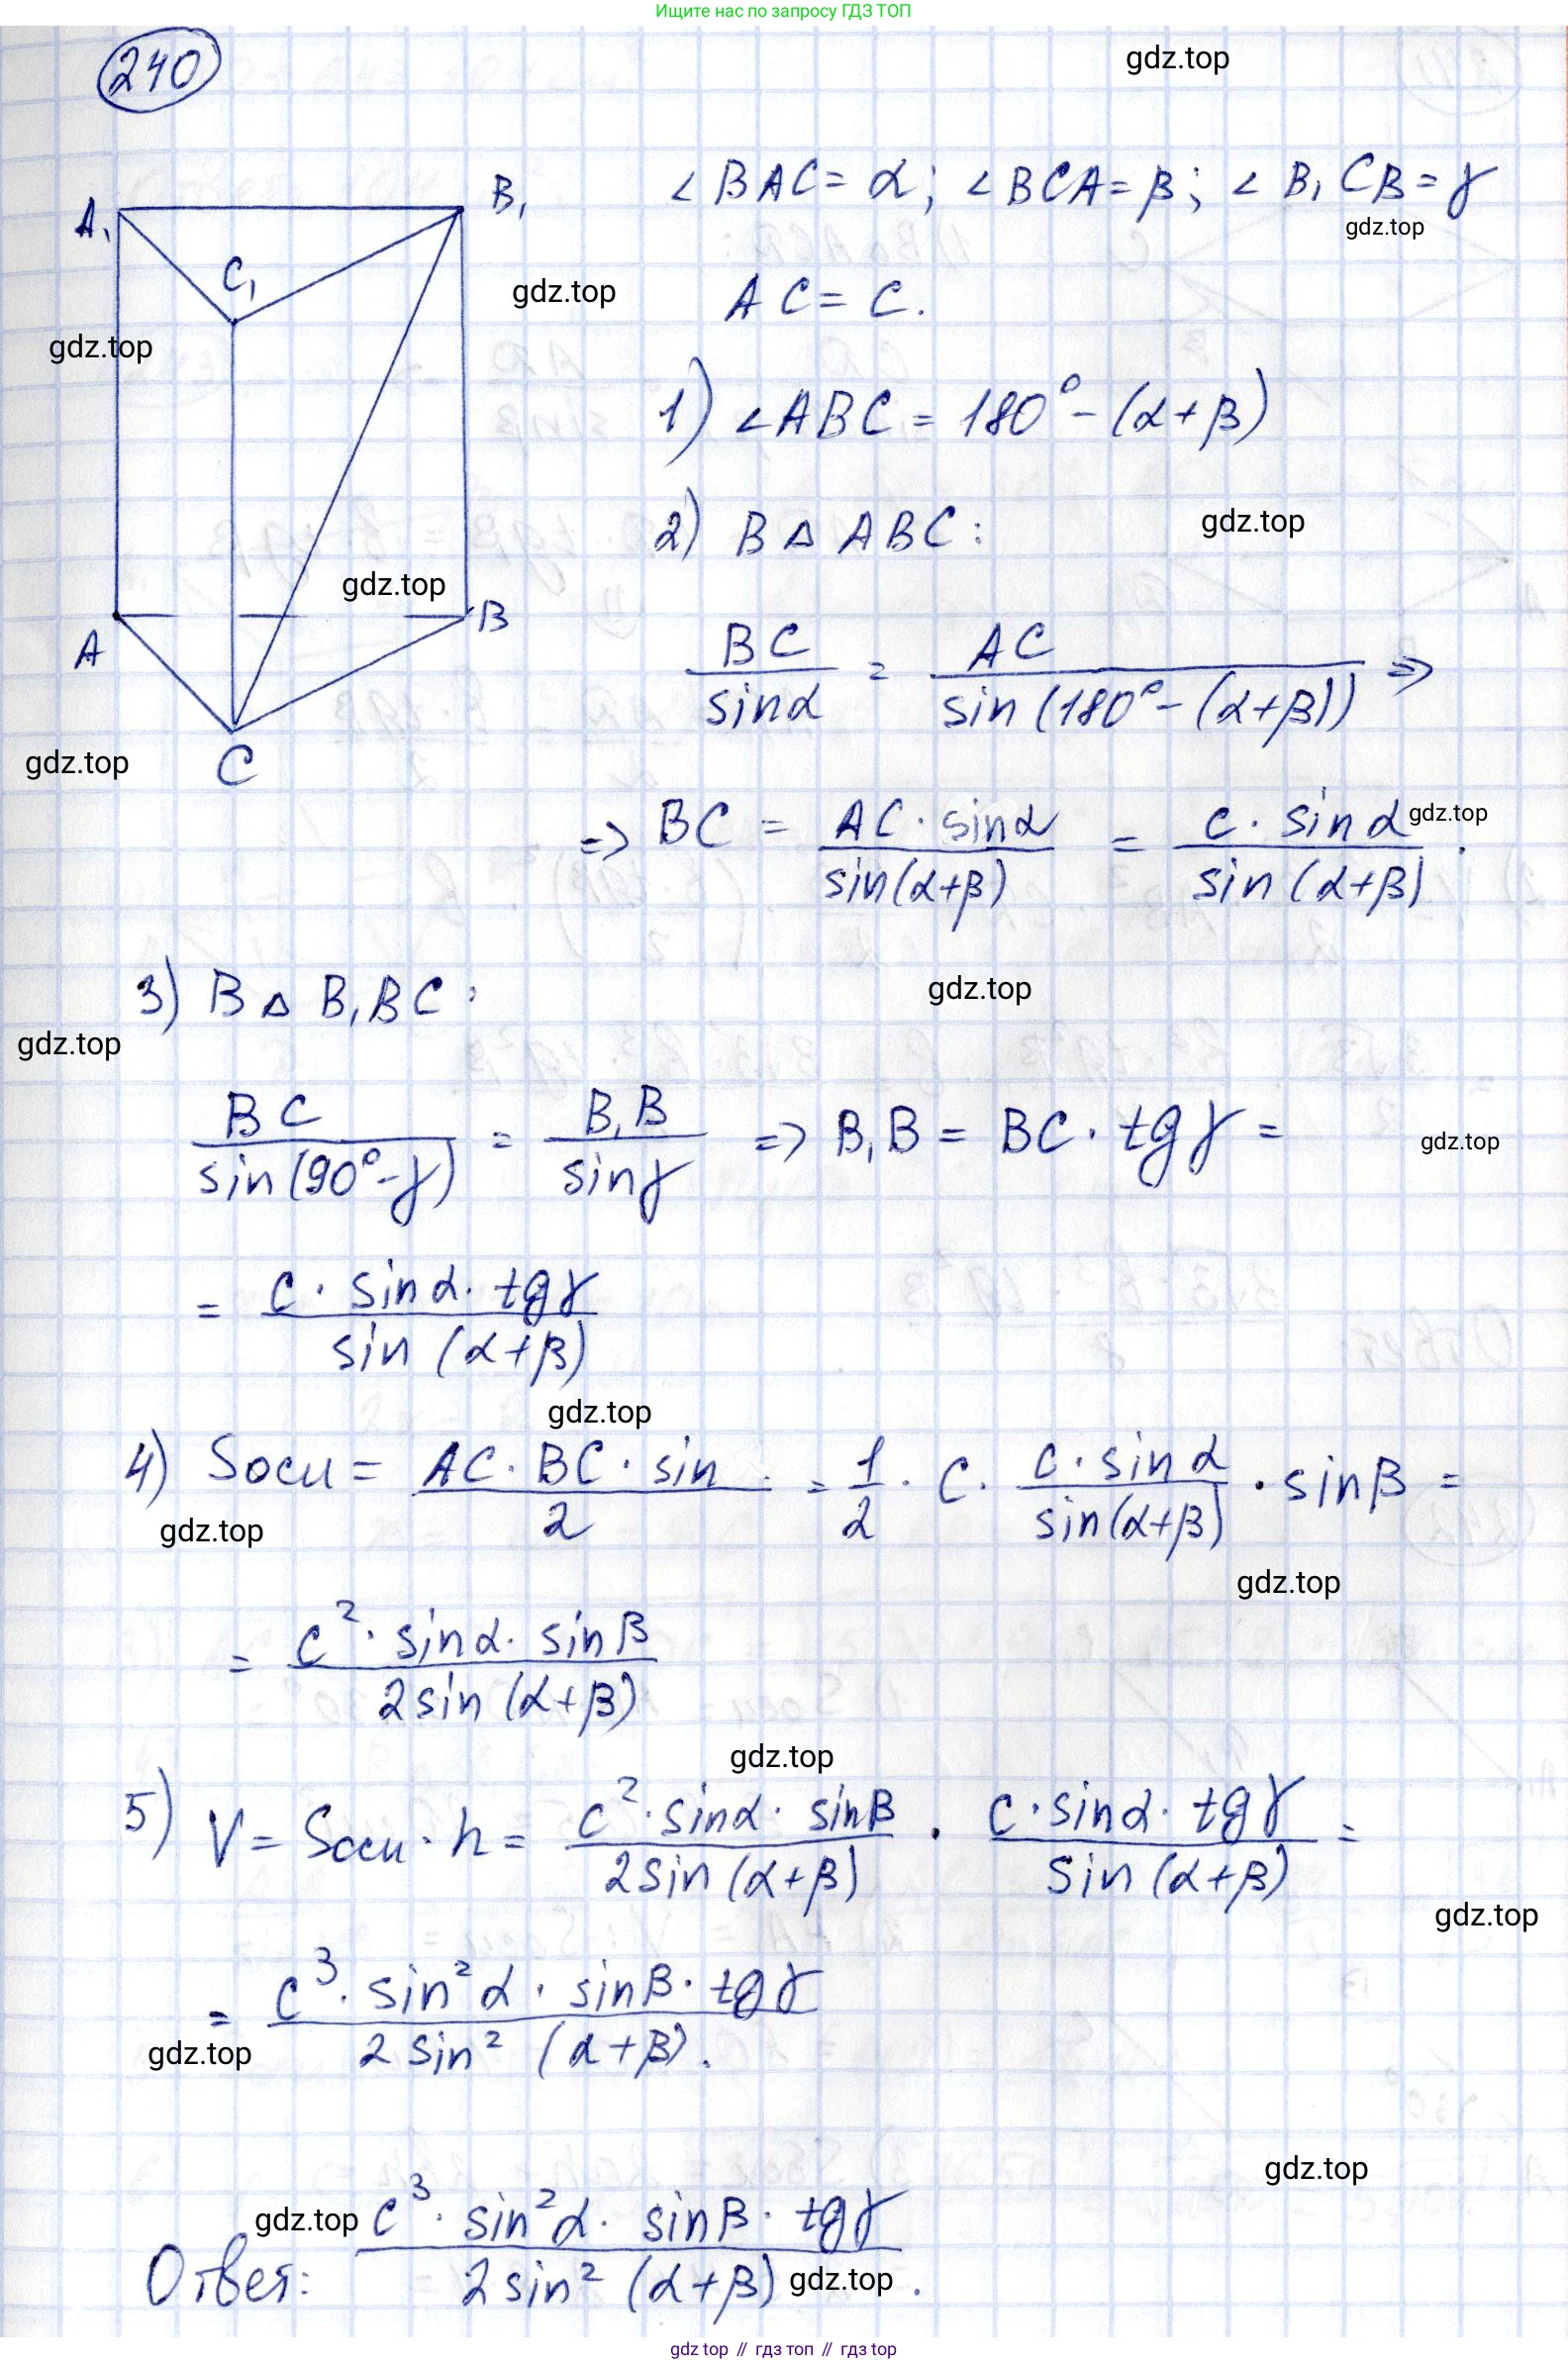 Ищите нас по запросу ГДЗ ТОП
240
gdz.top
A₁ B₁ C₁
A B C
∠BAC = α; ∠BCA = β; ∠B₁CB = γ
gdz.top
AC = c.
gdz.top
gdz.top
1) ∠ABC = 180° - (α+β)
2) В Δ ABC:
gdz.top
gdz.top
BC / sinα = AC / sin(180° - (α+β)) ⇒
gdz.top
⇒ BC = AC · sinα / sin(α+β) = c · sinα / sin(α+β).
gdz.top
3) В Δ B₁BC:
gdz.top
gdz.top
BC / sin(90°-γ) = B₁B / sinγ ⇒ B₁B = BC · tgγ =
gdz.top
= c · sinα · tgγ / sin(α+β)
gdz.top
4) Sосн = AC · BC · sin / 2 = 1/2 · c · c · sinα / sin(α+β) · sinβ =
gdz.top
gdz.top
= c² · sinα · sinβ / 2sin(α+β)
gdz.top
5) V = Sосн · h = c² · sinα · sinβ / 2sin(α+β) · c · sinα · tgγ / sin(α+β) =
gdz.top
= c³ · sin²α · sinβ · tgγ / 2sin²(α+β).
gdz.top
gdz.top
gdz.top
Ответ: c³ · sin²α · sinβ · tgγ / 2sin²(α+β).
gdz.top
gdz top // гдз топ // гдз top